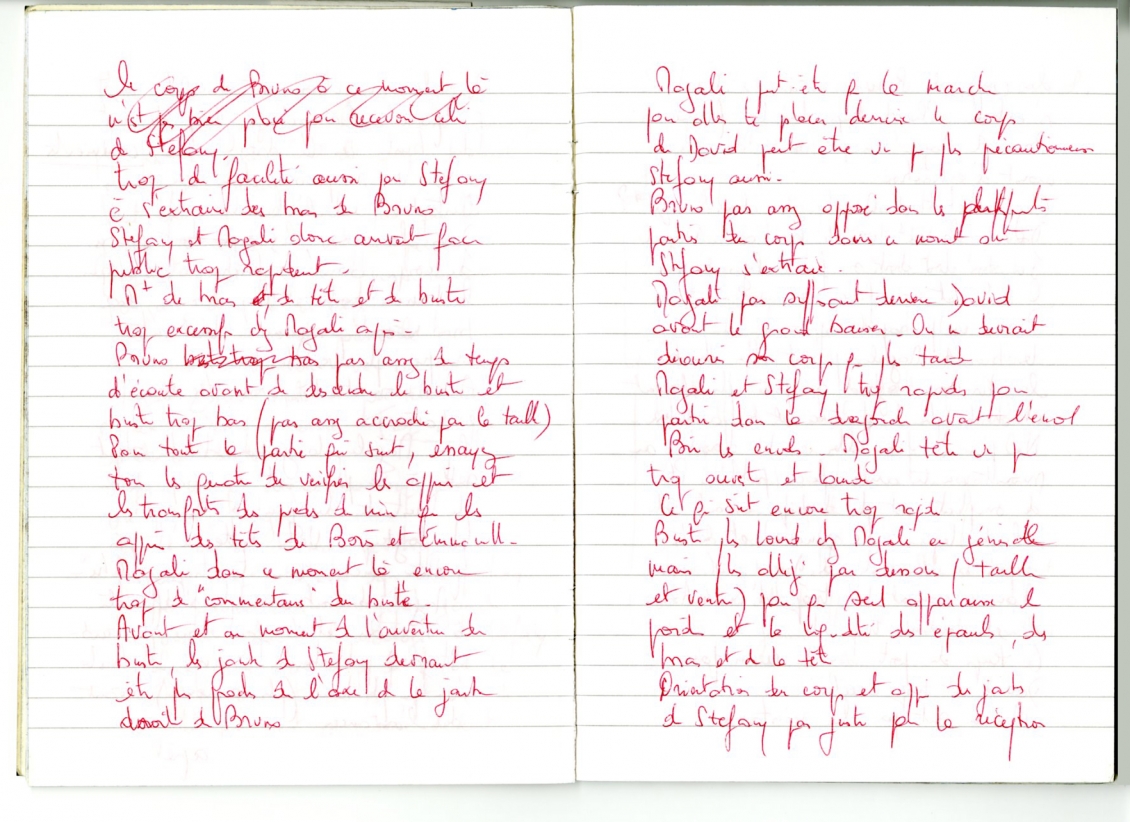 le corps de Bruno à ce moment là
n'est pas bien placé pour recevoir celui
de Stefany.
trop de facilité aussi pour Stefany
à s'extraire des bras de Bruno
Stefany et Magali donc arrivent face
public trop rapidement.
Mt de bras et de tête et de buste
trop excessif chez Magali après.
Bruno pas assez de temps
d'écoute avant de descendre le buste et
buste trop bas (pas assez accroché par la taille)
Pour tout la partie qui suit, essayez
tous les quatre de vérifier les appuis et
les transferts des pieds de même que les
appuis des têtes de Boris et Emmanuelle.
Magali dans ce moment là encore
trop de "commentaires" du buste.
Avant et au moment de l'ouverture du
buste, la jambe de Stefany devraient
être plus proche de l'axe de la jambe
de Bruno
Magali peut-être que la marche
pour aller te placer derrière le corps
de David peut être un peu plus précautionneuse
Stefany aussi.
Bruno pas assez opposé dans les différentes
parties du corps dans ce moment où
Stefany s'extraie.
Magali pas suffisamment derrière David
avant le grand baiser. On ne devrait
découvrir son corps que plus tard
Magali et Stefany trop rapides pour
partir dans la diagonale avant l'envol
Bien les envols. Magali tête un peu
trop ouvert et lourde
Ce qui suit encore trop rapide
Buste plus lourd chez Magali en générale
mais plus allégé par dessous (taille
et ventre) pour que seul apparaisse le
poids et la liquidité des épaules, des
bras et de la tête
Orientation du corps et appui des jambes
de Stefany pas juste pour la réception